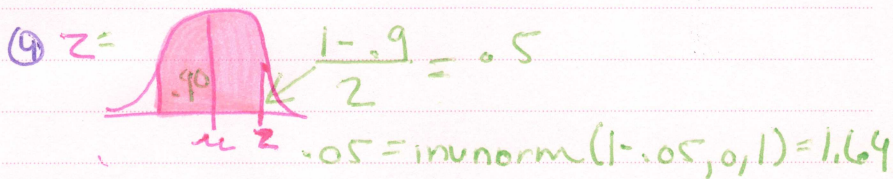 ④ z= .90 1-.9/2 = .5
μ z .05=invnorm(1-.05,0,1)=1.64